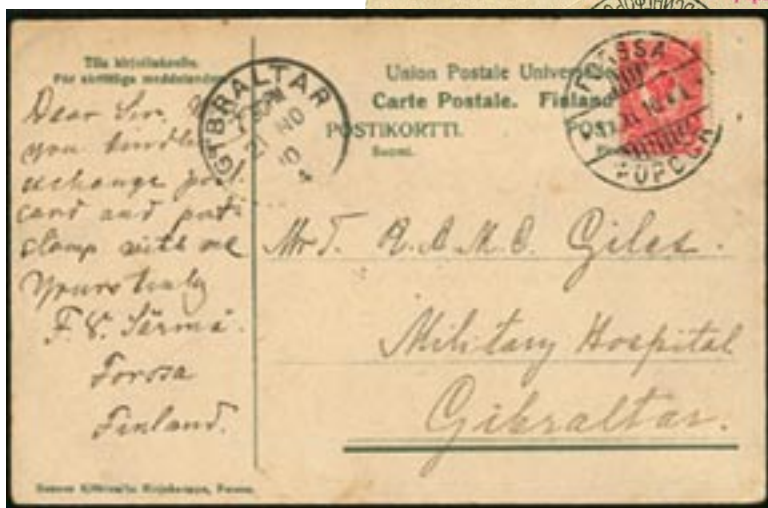 Tila kirjoitukselle.
För skriftliga meddelanden
Dear Sir,
you kindly
exchange post
card and post
stamp with me
Yours truly
F. V. Särmä.
Forssa
Finland.
GIBRALTAR
NO
10
4
Union Postale Universelle
Carte Postale. Finland
POSTIKORTTI.
Suomi.
FORSSA
Mr T. R.A.M.C. Giles.
Military Hospital
Gibraltar.
Forssa.